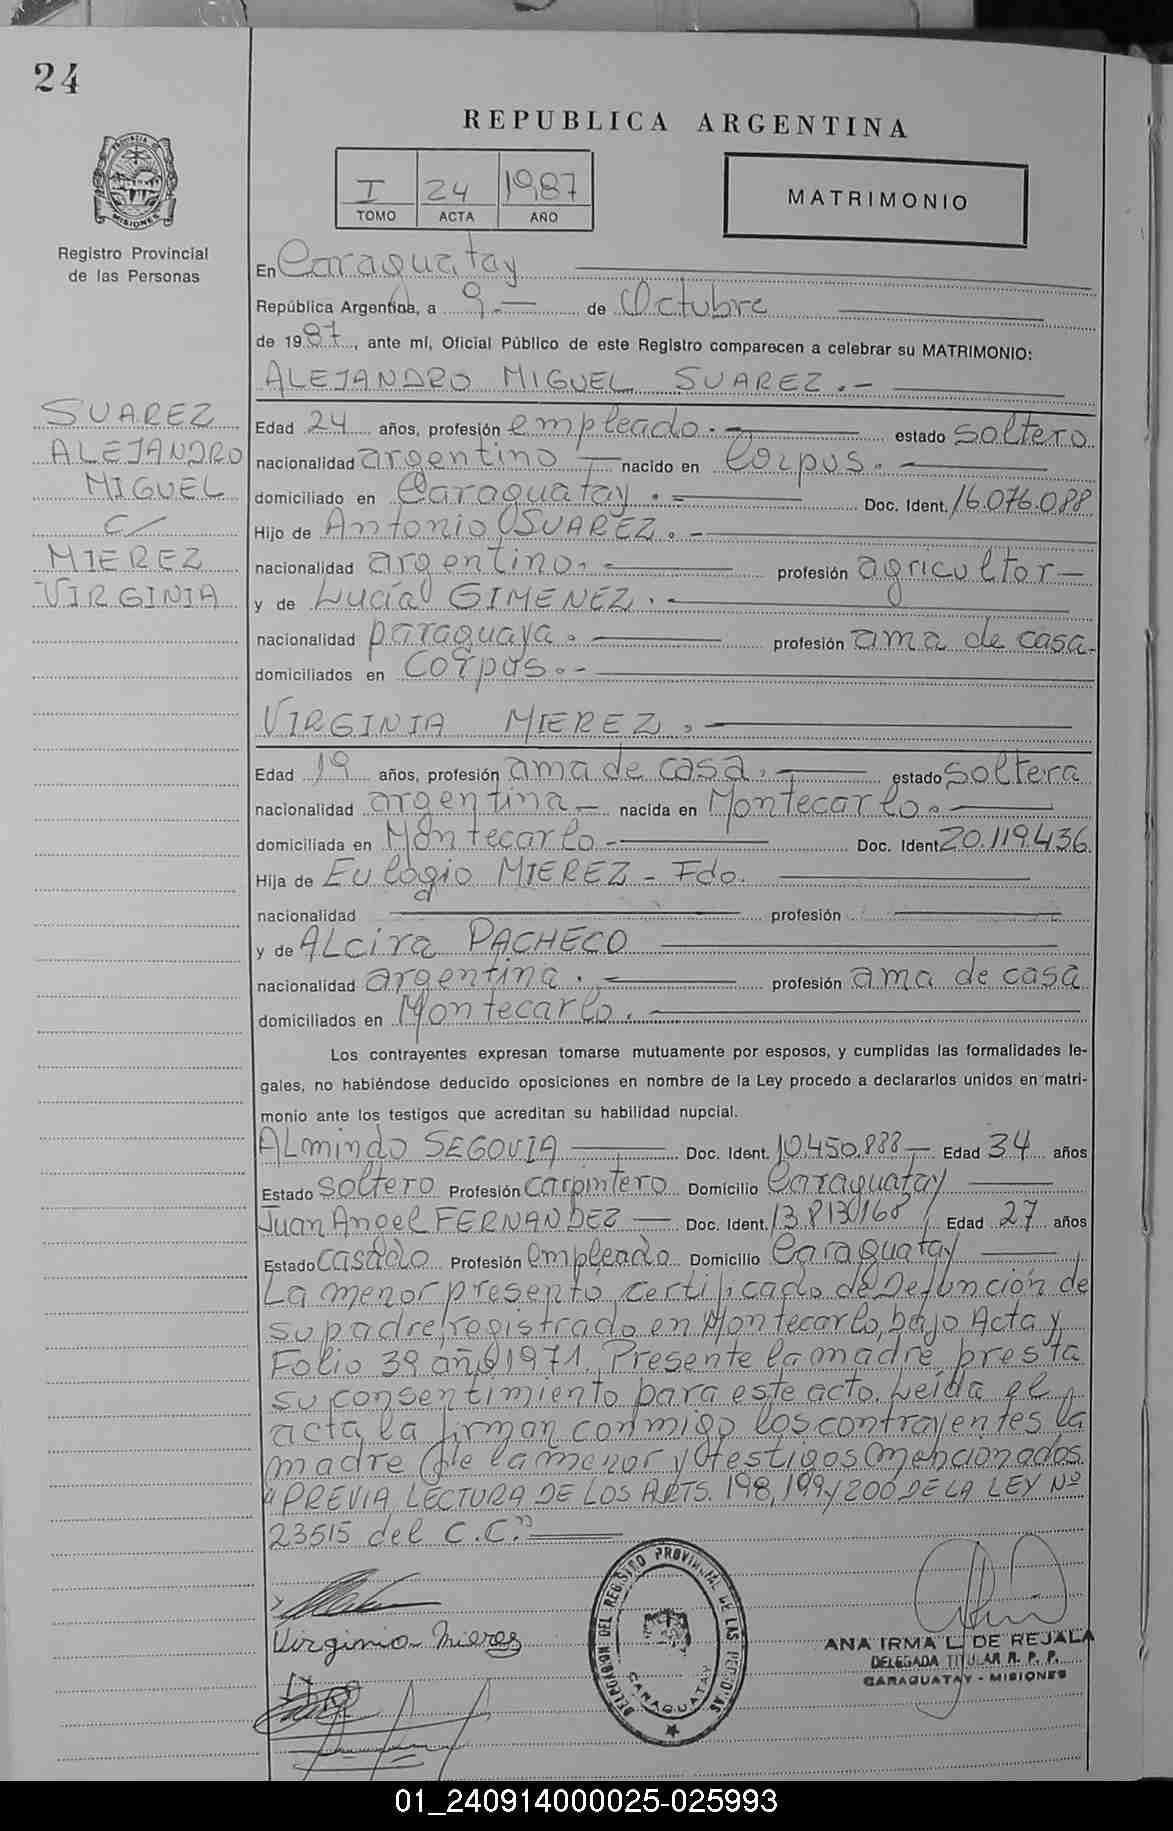 24
REPUBLICA ARGENTINA
I 24 1987
TOMO ACTA AÑO
MATRIMONIO
PROVINCIA DE MISIONES
Registro Provincial
de las Personas
En Caraguatay
República Argentina, a 9.- de Octubre
de 1987, ante mí, Oficial Público de este Registro comparecen a celebrar su MATRIMONIO:
ALEJANDRO MIGUEL SUAREZ.-
SUAREZ
ALEJANDRO
MIGUEL
C/
MIEREZ
VIRGINIA
Edad 24 años, profesión empleado.- estado soltero
nacionalidad argentino - nacido en Corpus.-
domiciliado en Caraguatay.- Doc. Ident. 16.076.088
Hijo de Antonio SUAREZ.-
nacionalidad argentino.- profesión agricultor-
y de Lucía GIMENEZ.-
nacionalidad paraguaya.- profesión ama de casa-
domiciliados en Corpus.-
VIRGINIA MIEREZ.-
Edad 19 años, profesión ama de casa.- estado soltera
nacionalidad argentina- nacida en Montecarlo.-
domiciliada en Montecarlo- Doc. Ident. 20.119.436
Hija de Eulogio MIEREZ - Fdo.
nacionalidad profesión
y de ALcira PACHECO
nacionalidad argentina.- profesión ama de casa
domiciliados en Montecarlo.-
Los contrayentes expresan tomarse mutuamente por esposos, y cumplidas las formalidades le-
gales, no habiéndose deducido oposiciones en nombre de la Ley procedo a declararlos unidos en matri-
monio ante los testigos que acreditan su habilidad nupcial.
ALmindo SEGOVIA Doc. Ident. 10.450.888- Edad 34 años
Estado soltero Profesión carpintero Domicilio Caraguatay
Juan Angel FERNANDEZ - Doc. Ident. 13.813016 8 Edad 27 años
Estado casado Profesión empleado Domicilio Caraguatay
La menor presentó certificado de Defunción de
su padre, registrado en Montecarlo, bajo Acta y
Folio 39 año 1971. Presente la madre presta
su consentimiento para este acto. Leída el
acta la firman conmigo los contrayentes la
madre de la menor y testigos mencionados.
"PREVIA LECTURA DE LOS ARTS. 198, 199 y 200 DE LA LEY Nº
23515 del C.C."
Virginia Mierez
DELEGACION DEL REGISTRO PROVINCIAL DE LAS PERSONAS
CARAGUATAY
ANA IRMA L. DE REJALA
DELEGADA TITULAR R. P. P.
CARAGUATAY - MISIONES
01_240914000025-025993